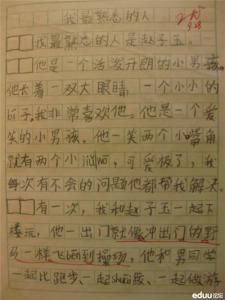 我最熟悉的人
我最熟悉的人是赵子玉。
他是一个活泼开朗的小男孩。
他长着一双大眼睛,一个小小的
我非常喜欢他。他是一个爱
笑的小男孩。他一笑两个小嘴角
就有两个小酒窝,可爱极了,我
每次有不会的问题他都帮我解决。
有一次,我和赵子玉一起下
楼玩,他一出门就像冲出门的野
马一样飞跑到操场,他和男同学
一起比跑步、一起 、一起做游
eduu论坛